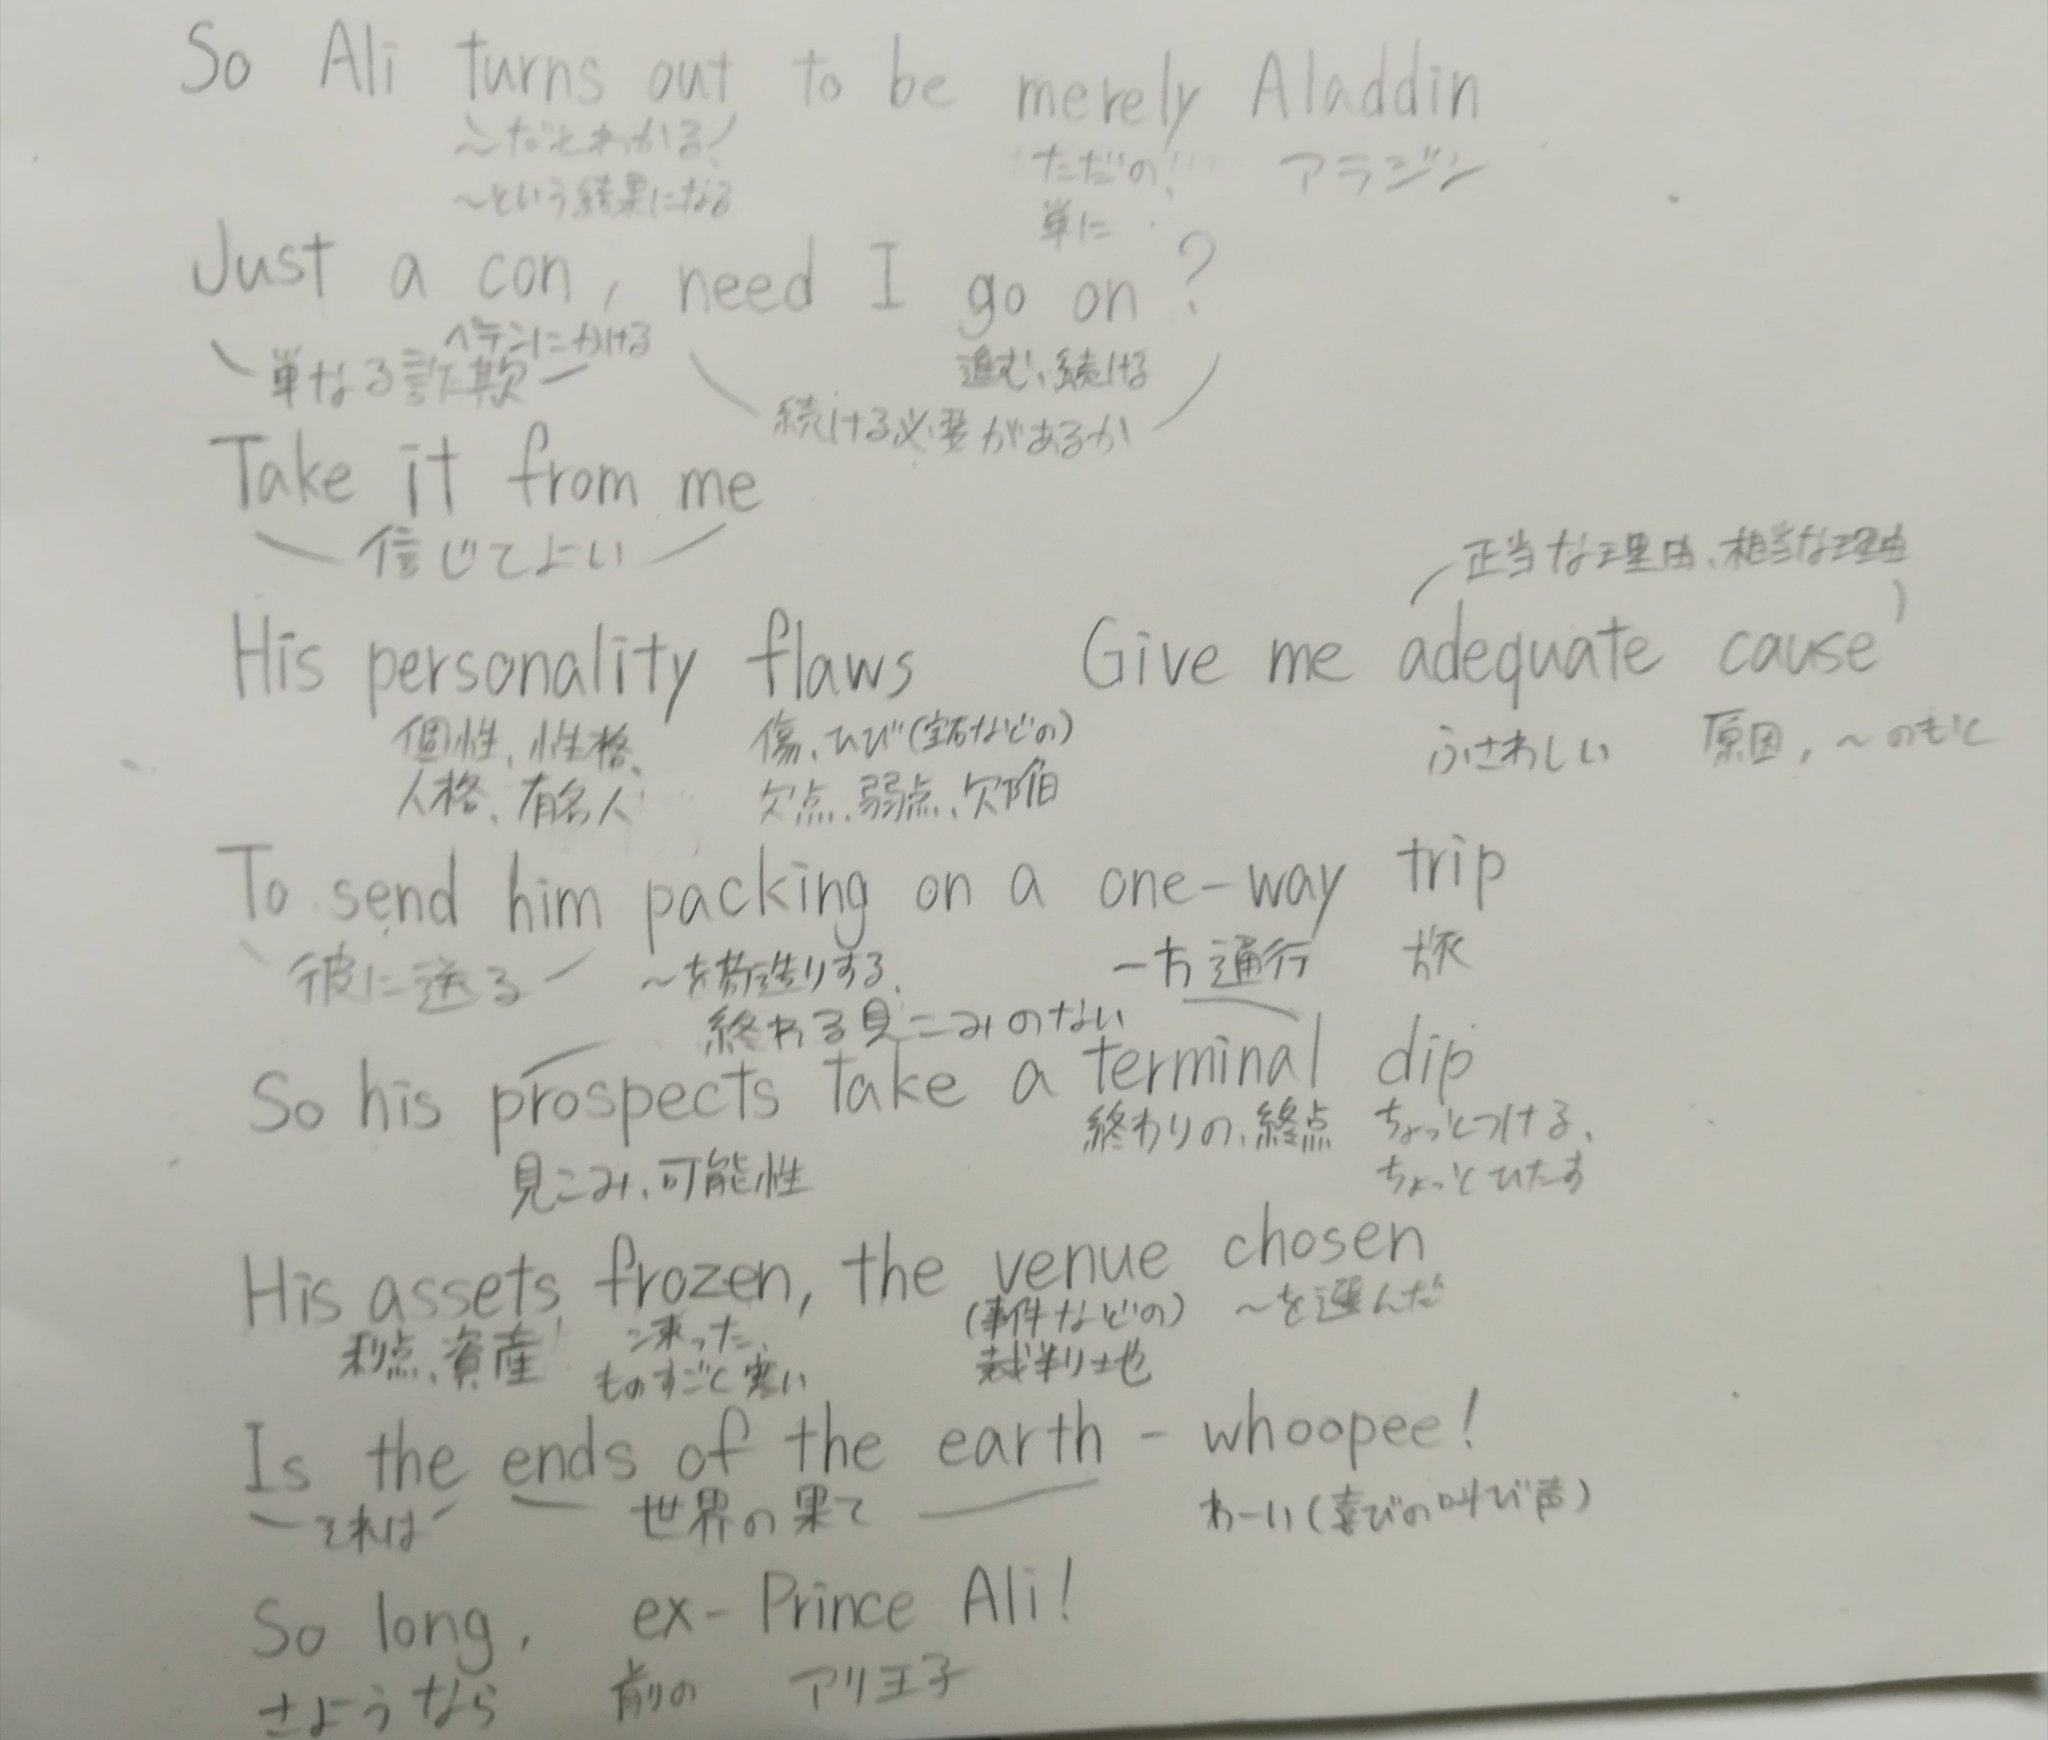 So Ali turns out to be merely Aladdin
〜だとわかる、 ただの、 アラジン
〜という結果になる 単に
Just a con, need I go on?
ペテンにかける 進む、続ける
単なる詐欺 続ける必要があるか
Take it from me
信じてよい
正当な理由、相当な理由
His personality flaws Give me adequate cause
個性、性格、 傷、ひび(宝石などの) ふさわしい 原因, 〜のもと
人格、有名人 欠点、弱点、欠陥
To send him packing on a one-way trip
彼に送る 〜を荷造りする、 一方通行 旅
終わる見こみのない
So his prospects take a terminal dip
見こみ、可能性 終わりの、終点 ちょっとつける、
ちょっとひたす
His assets frozen, the venue chosen
利点、資産 凍った、 (事件などの) 〜を選んだ
ものすごく寒い 裁判地
Is the ends of the earth - whoopee!
それは 世界の果て わーい(喜びの叫び声)
So long, ex-Prince Ali!
さようなら 前の アリ王子